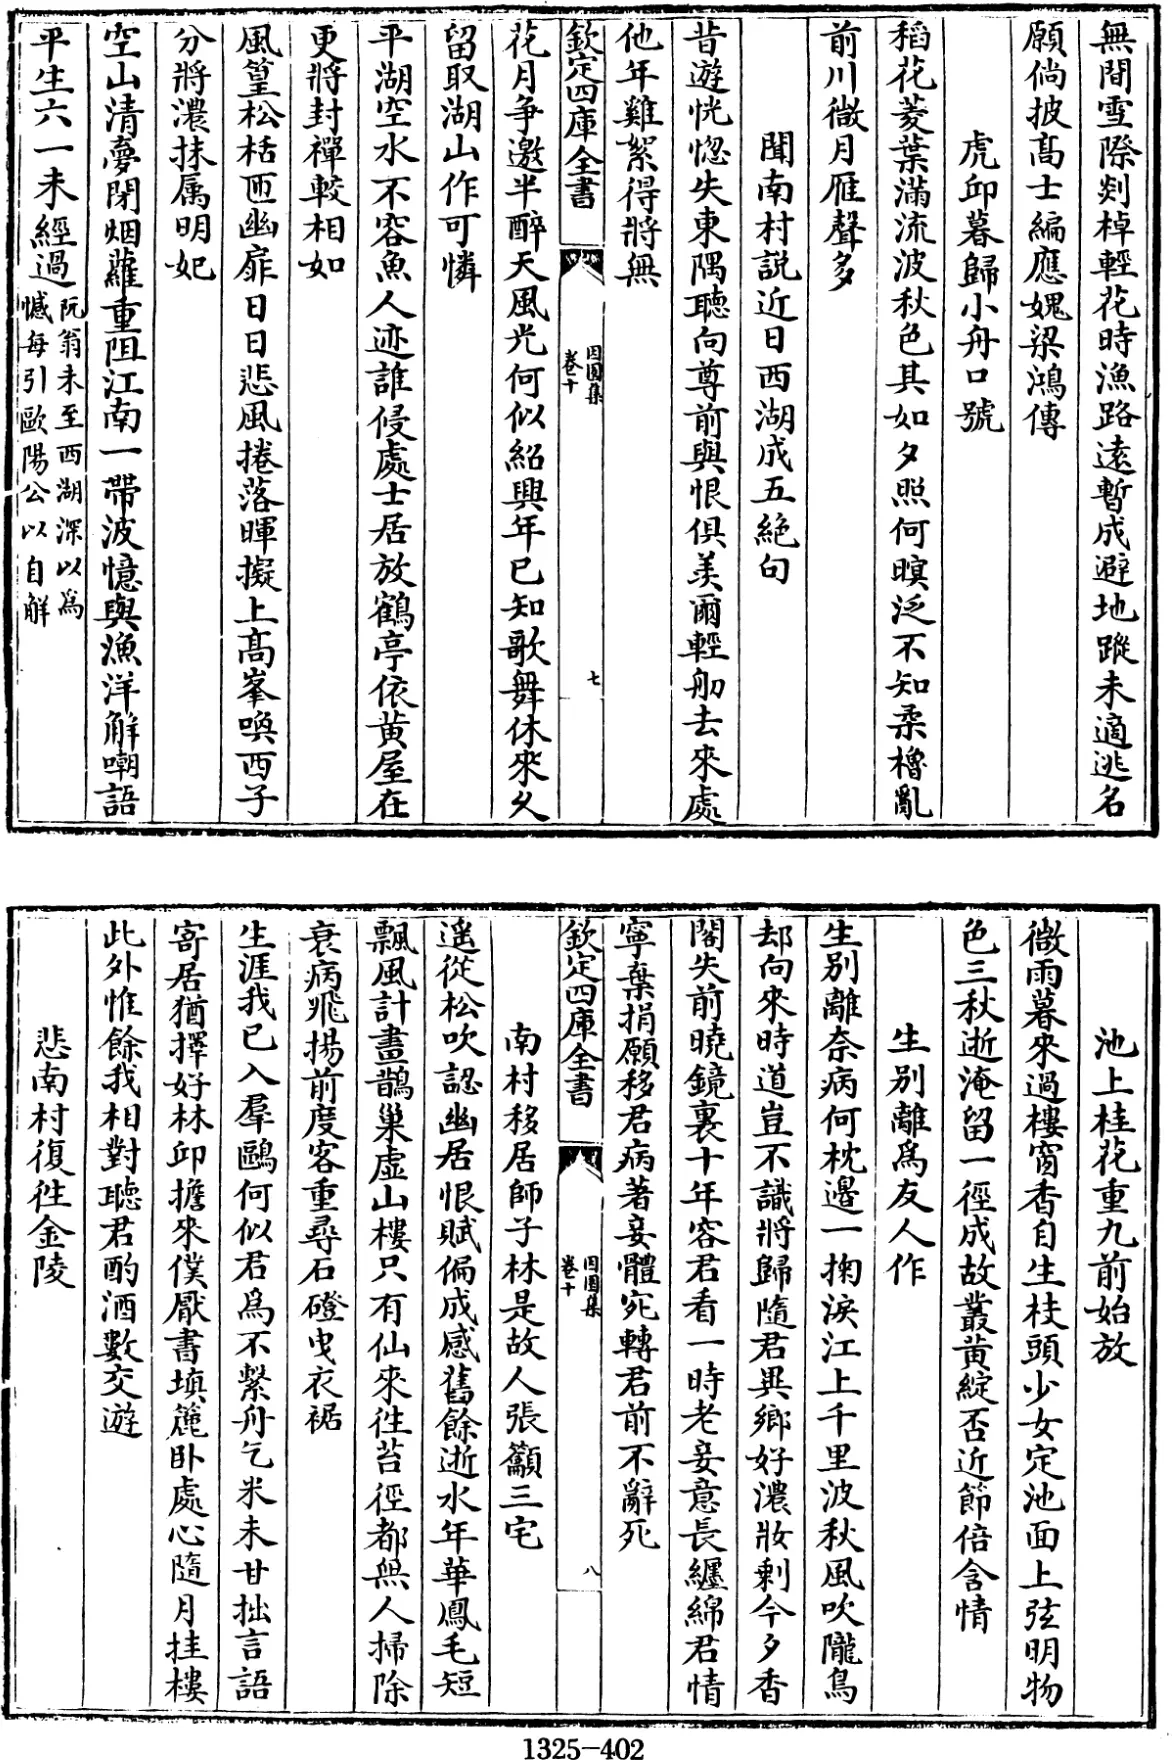 無間雪際剡棹輕花時漁路遠暫成避地蹤未適逃名
願倘披髙士編應媿梁鴻傳
虎丘暮歸小舟口號
稻花菱葉滿流波秋色其如夕照何暝泛不知柔櫓亂
前川微月雁聲多
聞南村説近日西湖成五絶句
昔遊恍惚失東隅聴向尊前與恨俱羡爾輕舠去來處
他年雞絮得將無
欽定四庫全書
因園集
卷十
七
花月爭邀半醉天風光何似紹興年已知歌舞休來久
留取湖山作可憐
平湖空水不容魚人迹誰侵處士居放鶴亭依黄屋在
更將封禪較相如
風篁松栝匝幽扉日日悲風捲落暉擬上髙峯喚西子
分將濃抹属明妃
空山清夢閉烟蘿重阻江南一帶波憶與漁洋觧嘲語
平生六一未經過阮翁未至西湖深以為
憾每引歐陽公以自觧
池上桂花重九前始放
微雨暮來過樓窗香自生枝頭少女定池面上弦明物
色三秋逝淹留一徑成故叢黄綻否近節倍含情
生别離為友人作
生别離奈病何枕邉一掬淚江上千里波秋風吹隴鳥
却向來時道豈不識將歸隨君異鄉好濃妝剩今夕香
閣失前曉鏡裏十年容君看一時老妾意長纒綿君情
寧棄捐願移君病著妾體宛轉君前不辭死
欽定四庫全書
因園集
卷十
八
南村移居師子林是故人張籲三宅
遥從松吹認幽居恨賦偏成感舊餘逝水年華鳳毛短
飄風計畫鵲巢虚山樓只有仙來徃苔徑都無人掃除
衰病飛揚前度客重尋石磴曳衣裾
生涯我已入羣鷗何似君為不繋舟乞米未甘拙言語
寄居猶擇好林丘擔來僕厭書填簏卧處心隨月挂樓
此外惟餘我相對聴君酌酒數交遊
悲南村復徃金陵
1325-402